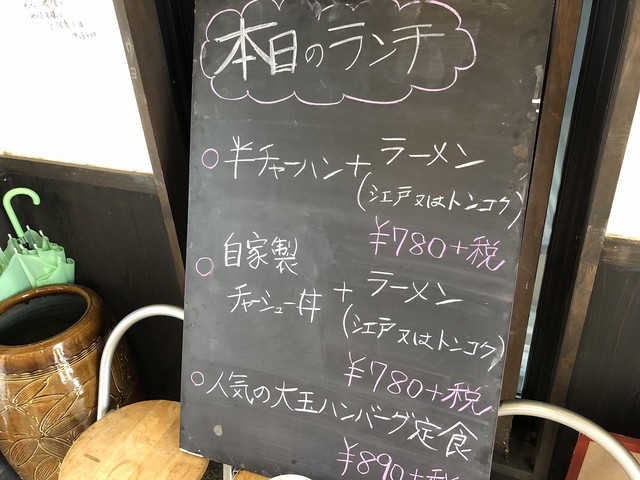 本日のランチ
○半チャーハン+ラーメン
(シ江戸又はトンコク)
¥780+税
○自家製
チャーシュー丼+ラーメン
(シ江戸又はトンコク)
¥780+税
○人気の大玉ハンバーグ定食
¥890+税